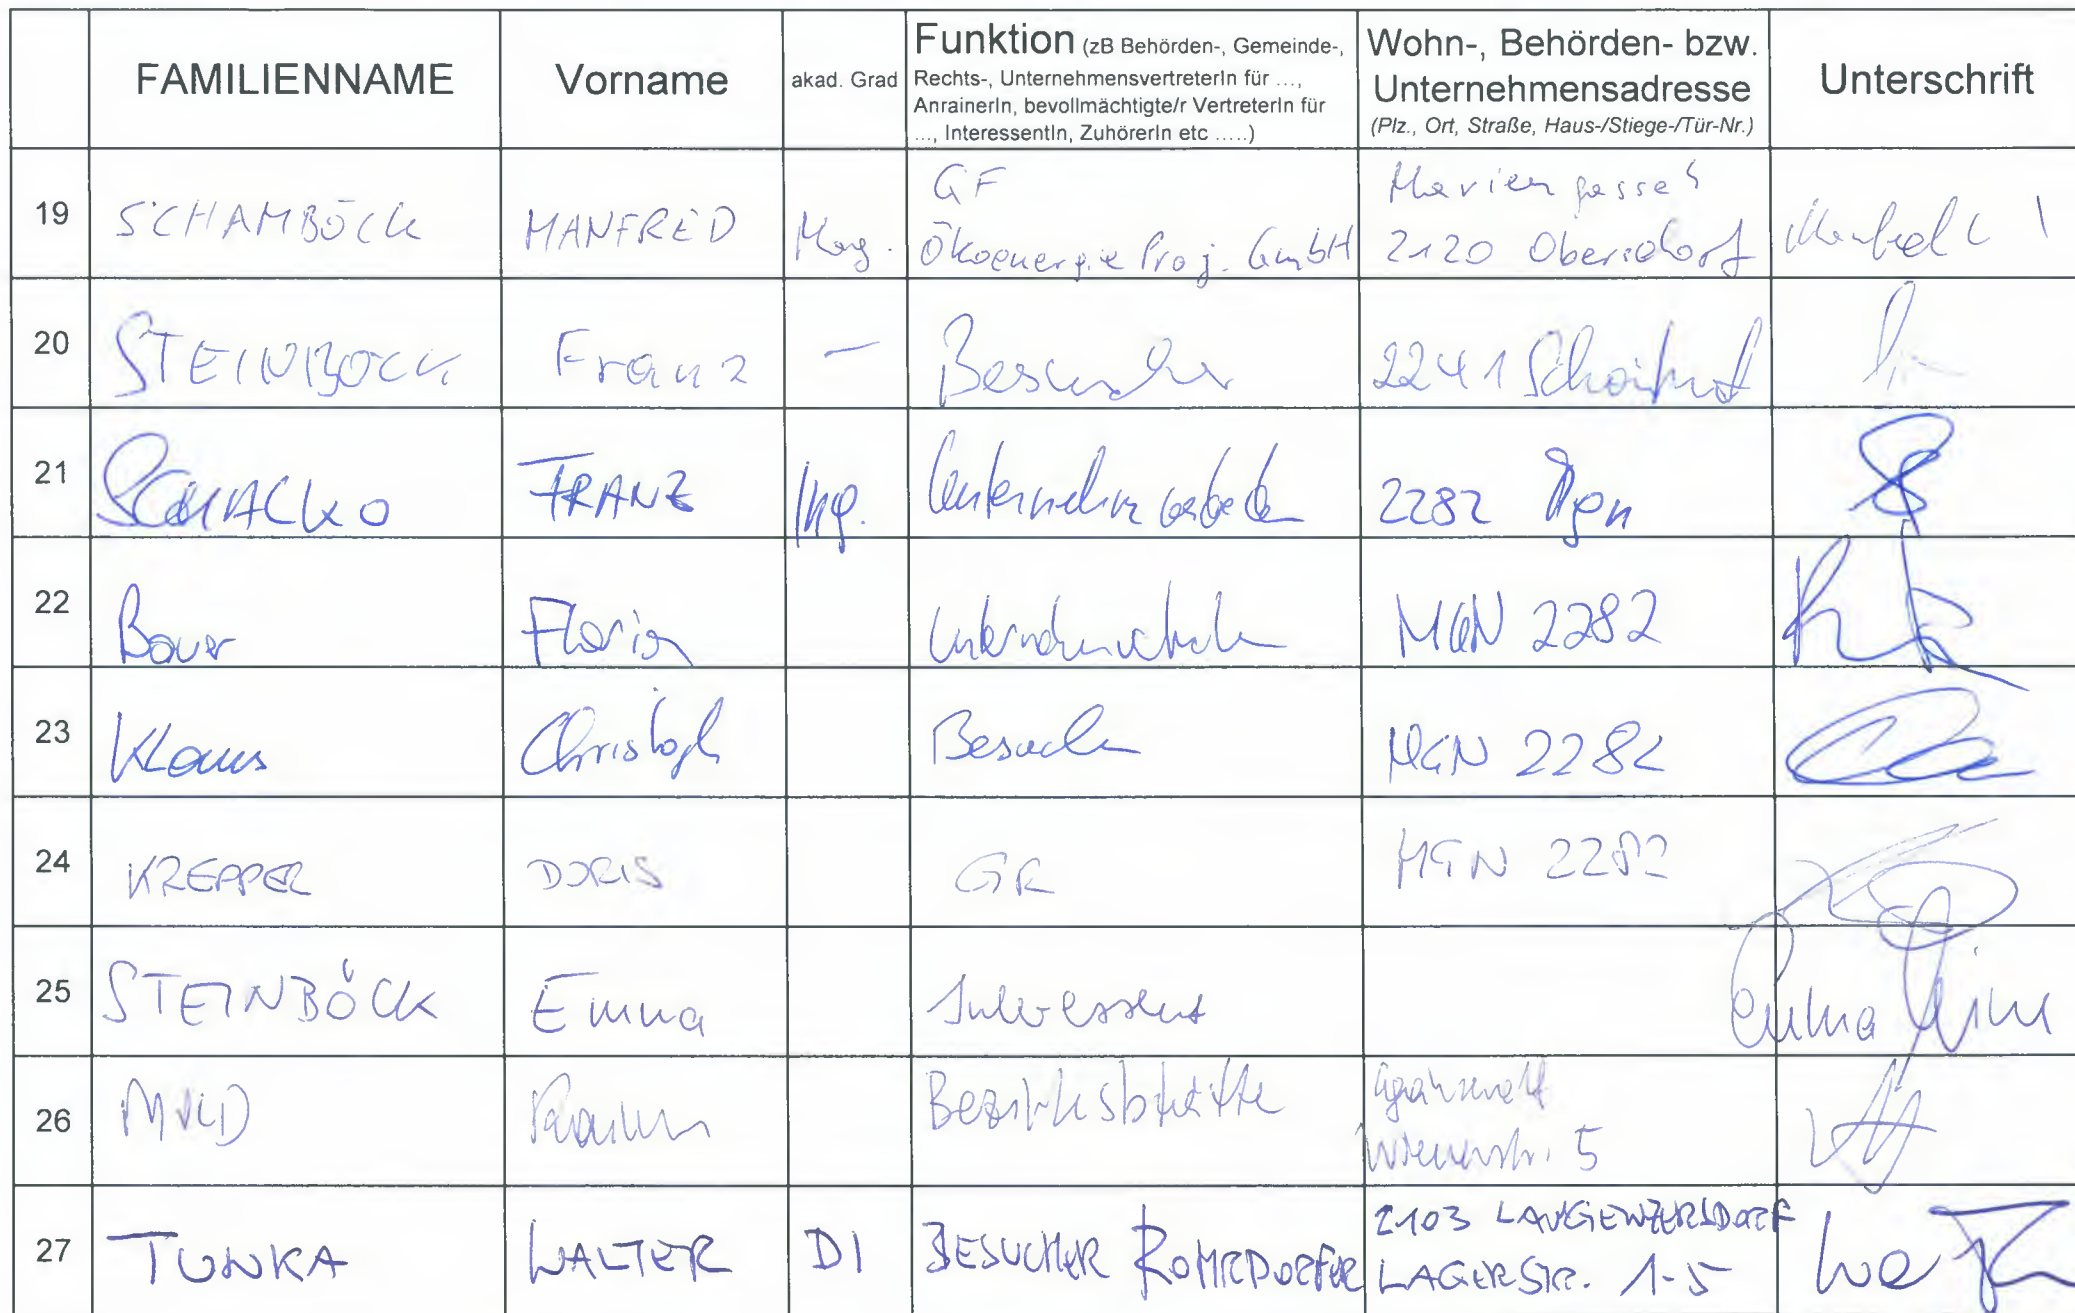 FAMILIENNAME Vorname akad. Grad Funktion (zB Behörden-, Gemeinde-, Rechts-, UnternehmensvertreterIn für ..., AnrainerIn, bevollmächtigte/r VertreterIn für ..., InteressentIn, ZuhörerIn etc .....) Wohn-, Behörden- bzw. Unternehmensadresse (Plz., Ort, Straße, Haus-/Stiege-/Tür-Nr.) Unterschrift
19 SCHAMBÖCK MANFRED Mag. GF Ökoenergie Proj. GmbH Mariengasse 2120 Obersdorf
20 STEINBÖCK Franz – Besucher 2241
21 FRANZ Ing. 2282
22 Bauer Florian MGN 2282
23 Klaus Christoph Besucher MGN 2282
24 KREPPER DORIS GR MGN 2282
25 STEINBÖCK Emma Interessent Emma
26 5
27 TUNKA WALTER DI BESUCHER ROHRDORFER 2103 LANGENZERSDORF LAGERSTR. 1-5